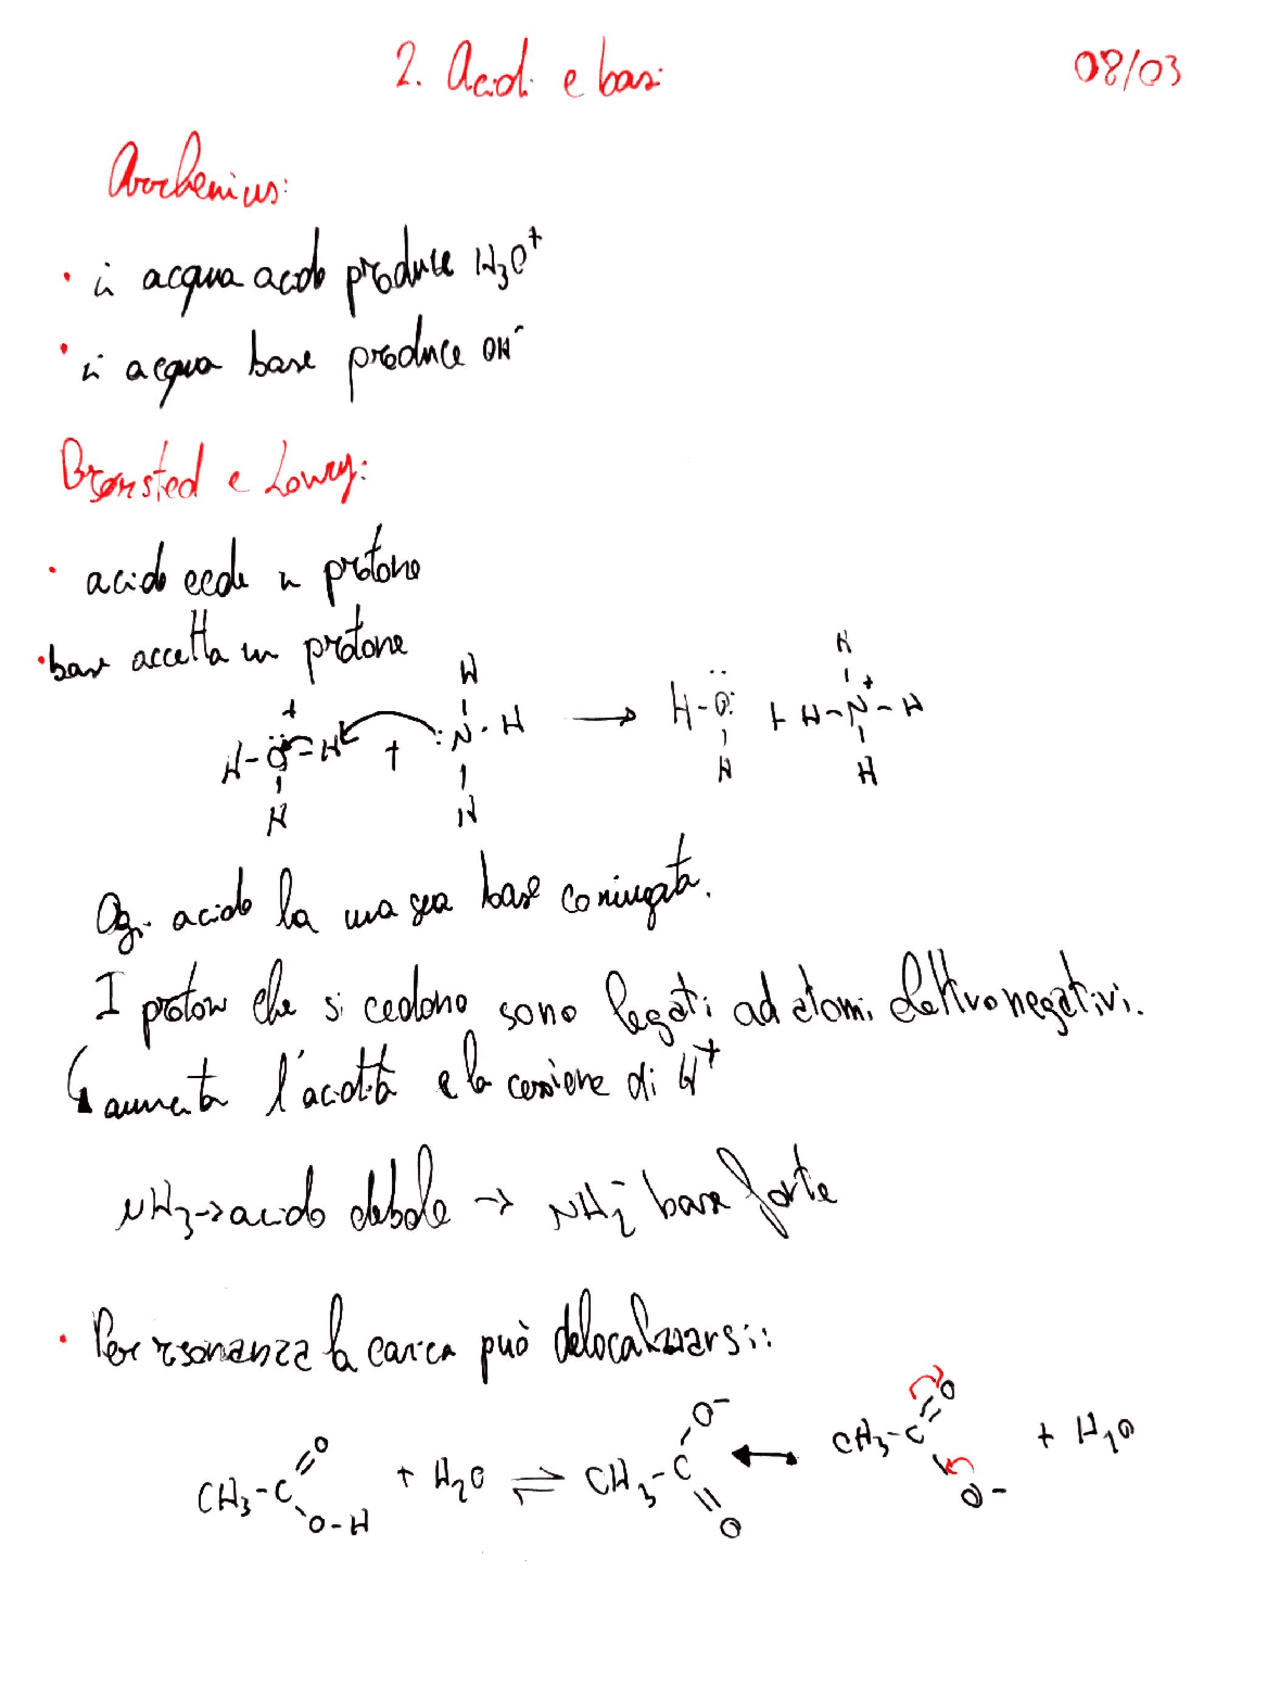 2. Acidi e basi 08/03
Arrhenius:
• in acqua acido produce H₃O⁺
• in acqua base produce OH⁻
Brønsted e Lowry:
• acido cede un protone
• base accetta un protone
H-Ö⁺-H + :N-H → H-Ö: + H-N⁺-H
H H H H
H H
Ogni acido ha una sua base coniugata.
I protoni che si cedono sono legati ad atomi elettronegativi.
↳ aumenta l'acidità e la cessione di H⁺
NH₃ → acido debole → NH₂⁻ base forte
• Per risonanza la carica può delocalizzarsi:
CH₃-C=O O-H + H₂O ⇌ CH₃-C O⁻ =O ↔ CH₃-C =O O⁻ + H₂O